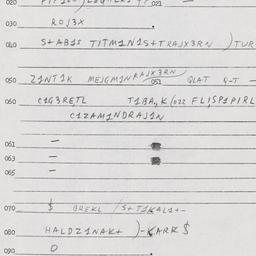 020
021
030 ROJ3X
040 S+AB1S TITM1N1S+TRAJX3RN )TUR
050 Z1NT1K MEIGM1NRAJX3RN 051 QLAT Q-T —
060 C1G3RE,TL T1BA,K (022 FLISP1PIRL
C1ZAM1NDRAJ1N
061 —
063 —
065 —
070 $ BREKL /S+T1KAL1+-
080 HALDZ1NAK+ )-KARK $
090 O